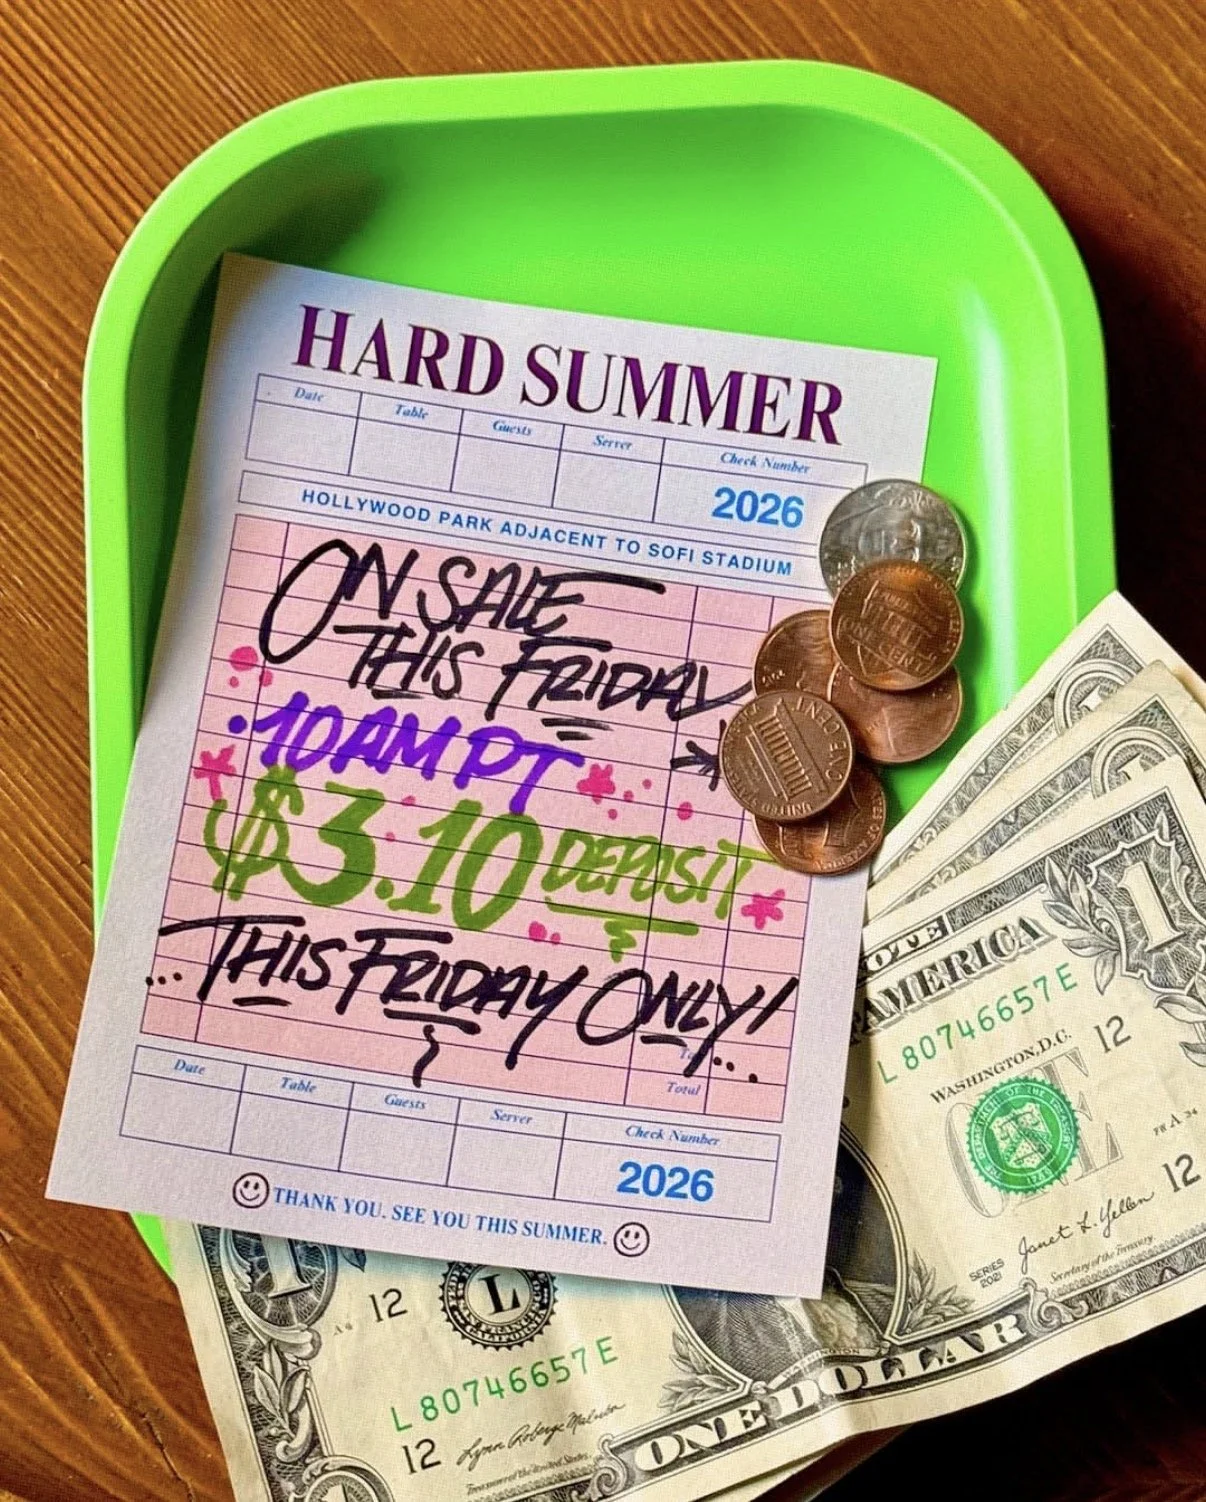 HARD SUMMER
Date Table Guests Server Check Number
2026
HOLLYWOOD PARK ADJACENT TO SOFI STADIUM
ON SALE
THIS FRIDAY
10AM PT
$3.10 DEPOSIT
...THIS FRIDAY ONLY!...
Total
Date Table Guests Server Check Number
2026
THANK YOU. SEE YOU THIS SUMMER.
ONE CENT
AMERICA
1
L 80746657 E
12
WASHINGTON, D.C.
THE DEPARTMENT OF THE TREASURY
1
L
12
L 80746657 E
12
12
SERIES
2021
Janet L. Yellen
Secretary of the Treasury
ONE DOLLAR
WASHINGTON